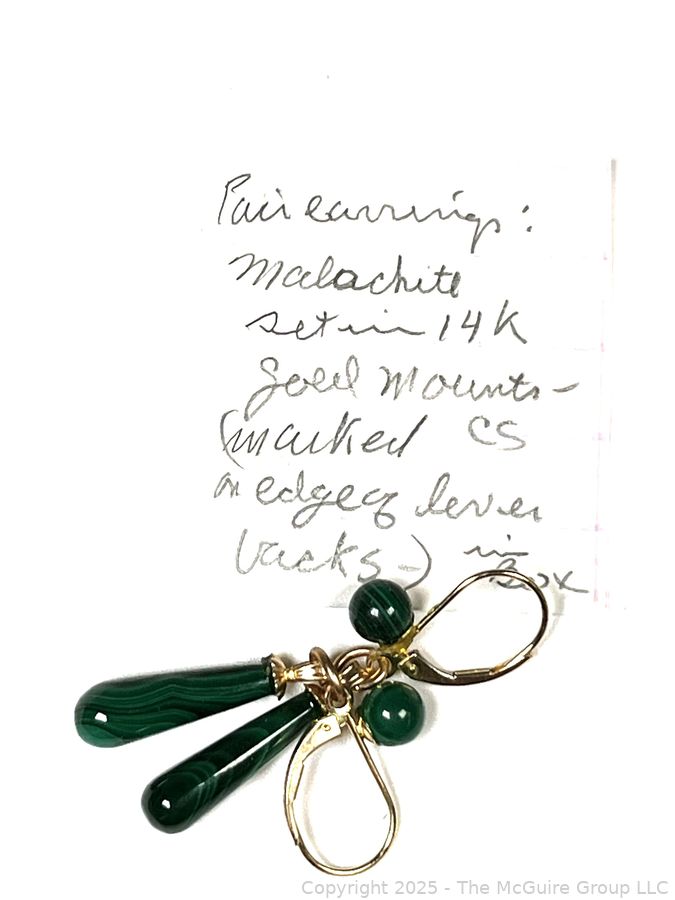 Pair earrings:
Malachite
set in 14K
gold mounts -
(marked CS
on edge of lever
backs-) in
Box
Copyright 2025 - The McGuire Group LLC